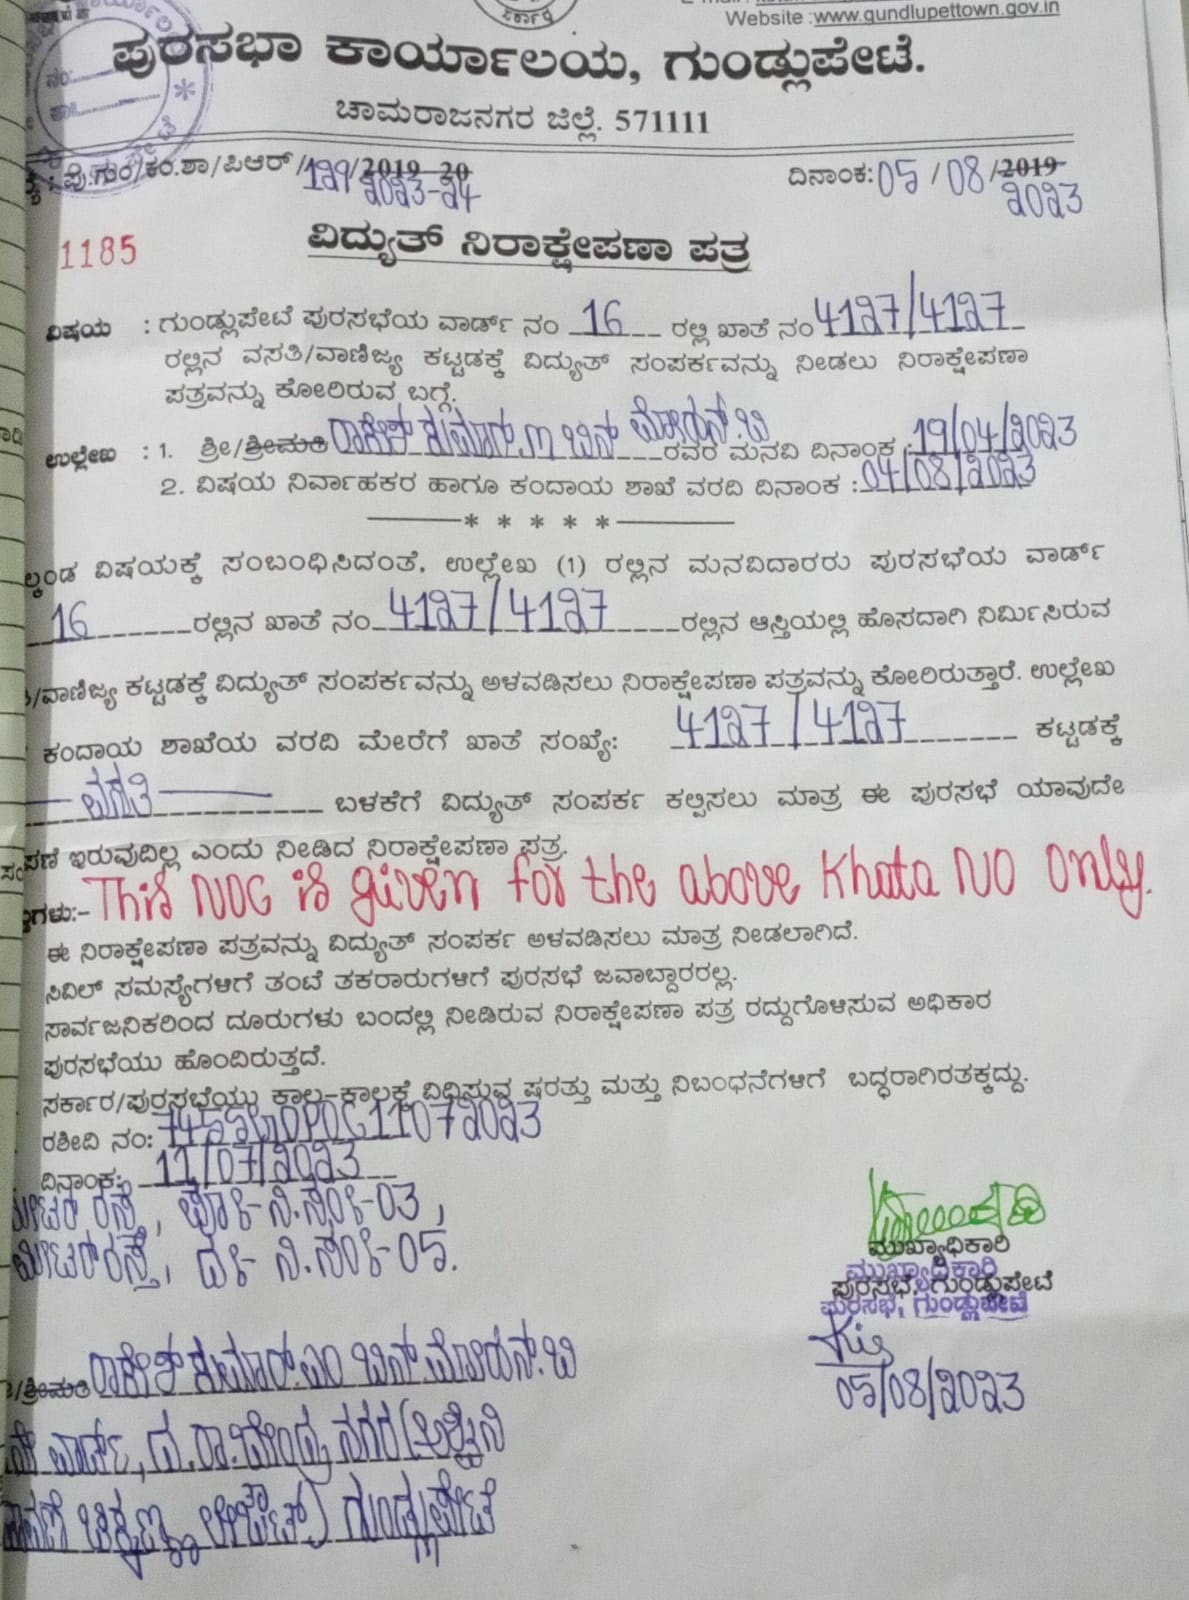 ಸರ್ಕಾರಿ
Website :www.gundlupettown.gov.in
ಪುರಸಭಾ ಕಾರ್ಯಾಲಯ, ಗುಂಡ್ಲುಪೇಟೆ.
ಚಾಮರಾಜನಗರ ಜಿಲ್ಲೆ. 571111
ಪು.ಗುಂ/ಕಂ.ಶಾ/ಪಿಆರ್/129/2019-20 ದಿನಾಂಕ:05/08/2019
2023-24 2023
1185 ವಿದ್ಯುತ್ ನಿರಾಕ್ಷೇಪಣಾ ಪತ್ರ
ವಿಷಯ : ಗುಂಡ್ಲುಪೇಟೆ ಪುರಸಭೆಯ ವಾರ್ಡ್ ನಂ 16 ರಲ್ಲಿ ಖಾತೆ ನಂ 4127/4127
ರಲ್ಲಿನ ವಸತಿ/ವಾಣಿಜ್ಯ ಕಟ್ಟಡಕ್ಕೆ ವಿದ್ಯುತ್ ಸಂಪರ್ಕವನ್ನು ನೀಡಲು ನಿರಾಕ್ಷೇಪಣಾ
ಪತ್ರವನ್ನು ಕೋರಿರುವ ಬಗ್ಗೆ.
ಉಲ್ಲೇಖ : 1. ಶ್ರೀ/ಶ್ರೀಮತಿ ರಾಕೇಶ್ ಕುಮಾರ್.ಎಂ ಬಿನ್ ಮೋಹನ್.ಬಿ ರವರ ಮನವಿ ದಿನಾಂಕ :19/04/2023
2. ವಿಷಯ ನಿರ್ವಾಹಕರ ಹಾಗೂ ಕಂದಾಯ ಶಾಖೆ ವರದಿ ದಿನಾಂಕ :04/08/2023
* * * * *
ಲ್ಕಂಡ ವಿಷಯಕ್ಕೆ ಸಂಬಂಧಿಸಿದಂತೆ, ಉಲ್ಲೇಖ (1) ರಲ್ಲಿನ ಮನವಿದಾರರು ಪುರಸಭೆಯ ವಾರ್ಡ್
16 ರಲ್ಲಿನ ಖಾತೆ ನಂ 4127/4127 ರಲ್ಲಿನ ಆಸ್ತಿಯಲ್ಲಿ ಹೊಸದಾಗಿ ನಿರ್ಮಿಸಿರುವ
/ವಾಣಿಜ್ಯ ಕಟ್ಟಡಕ್ಕೆ ವಿದ್ಯುತ್ ಸಂಪರ್ಕವನ್ನು ಅಳವಡಿಸಲು ನಿರಾಕ್ಷೇಪಣಾ ಪತ್ರವನ್ನು ಕೋರಿರುತ್ತಾರೆ. ಉಲ್ಲೇಖ
ಕಂದಾಯ ಶಾಖೆಯ ವರದಿ ಮೇರೆಗೆ ಖಾತೆ ಸಂಖ್ಯೆ: 4127/4127 ಕಟ್ಟಡಕ್ಕೆ
ವಸತಿ ಬಳಕೆಗೆ ವಿದ್ಯುತ್ ಸಂಪರ್ಕ ಕಲ್ಪಿಸಲು ಮಾತ್ರ ಈ ಪುರಸಭೆ ಯಾವುದೇ
ಪಣೆ ಇರುವುದಿಲ್ಲ ಎಂದು ನೀಡಿದ ನಿರಾಕ್ಷೇಪಣಾ ಪತ್ರ.
ಗಳು:- This NOC is given for the above Khata NO only.
ಈ ನಿರಾಕ್ಷೇಪಣಾ ಪತ್ರವನ್ನು ವಿದ್ಯುತ್ ಸಂಪರ್ಕ ಅಳವಡಿಸಲು ಮಾತ್ರ ನೀಡಲಾಗಿದೆ.
ಸಿವಿಲ್ ಸಮಸ್ಯೆಗಳಿಗೆ ತಂಟೆ ತಕರಾರುಗಳಿಗೆ ಪುರಸಭೆ ಜವಾಬ್ದಾರರಲ್ಲ.
ಸಾರ್ವಜನಿಕರಿಂದ ದೂರುಗಳು ಬಂದಲ್ಲಿ ನೀಡಿರುವ ನಿರಾಕ್ಷೇಪಣಾ ಪತ್ರ ರದ್ದುಗೊಳಿಸುವ ಅಧಿಕಾರ
ಪುರಸಭೆಯು ಹೊಂದಿರುತ್ತದೆ.
ಸರ್ಕಾರ/ಪುರಸಭೆಯು ಕಾಲ-ಕಾಲಕ್ಕೆ ವಿಧಿಸುವ ಷರತ್ತು ಮತ್ತು ನಿಬಂಧನೆಗಳಿಗೆ ಬದ್ಧರಾಗಿರತಕ್ಕದ್ದು.
ರಶೀದಿ ನಂ:
ದಿನಾಂಕ: 11/07/2023
ಮೀಟರ್ ರಸ್ತೆ,
ಮೀಟರ್ ರಸ್ತೆ,
ಮುಖ್ಯಾಧಿಕಾರಿ
ಮುಖ್ಯಾಧಿಕಾರಿ
ಪುರಸಭೆ, ಗುಂಡ್ಲುಪೇಟೆ
ಪುರಸಭೆ, ಗುಂಡ್ಲುಪೇಟೆ
05/08/2023
/ಶ್ರೀಮತಿ ರಾಕೇಶ್ ಕುಮಾರ್.ಎಂ ಬಿನ್ ಮೋಹನ್.ಬಿ
ನೇ ವಾರ್ಡ್, ನಗರ (ಅಶ್ವಿನಿ
ಬಡಾವಣೆ ಚಿಕ್ಕಣ್ಣ ಲೇಔಟ್) ಗುಂಡ್ಲುಪೇಟೆ